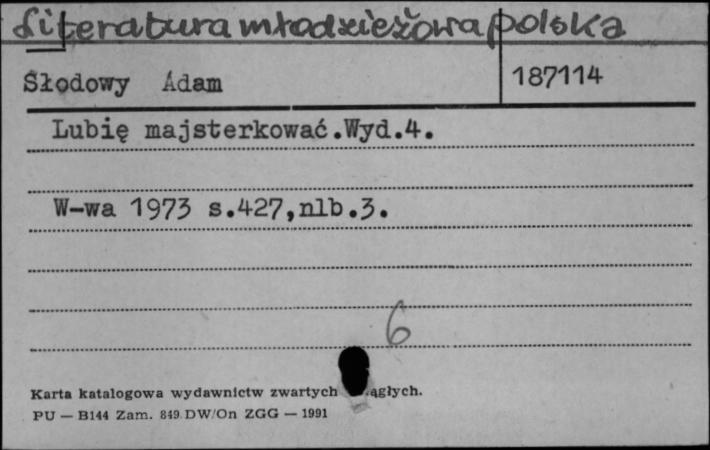 Literatura młodzieżowa polska
Słodowy Adam
187114
Lubię majsterkować.Wyd.4.
W-wa 1973 s.427,nlb.3.
6
Karta katalogowa wydawnictw zwartych ągłych.
PU — B144 Zam. 849 DW/On ZGG — 1991